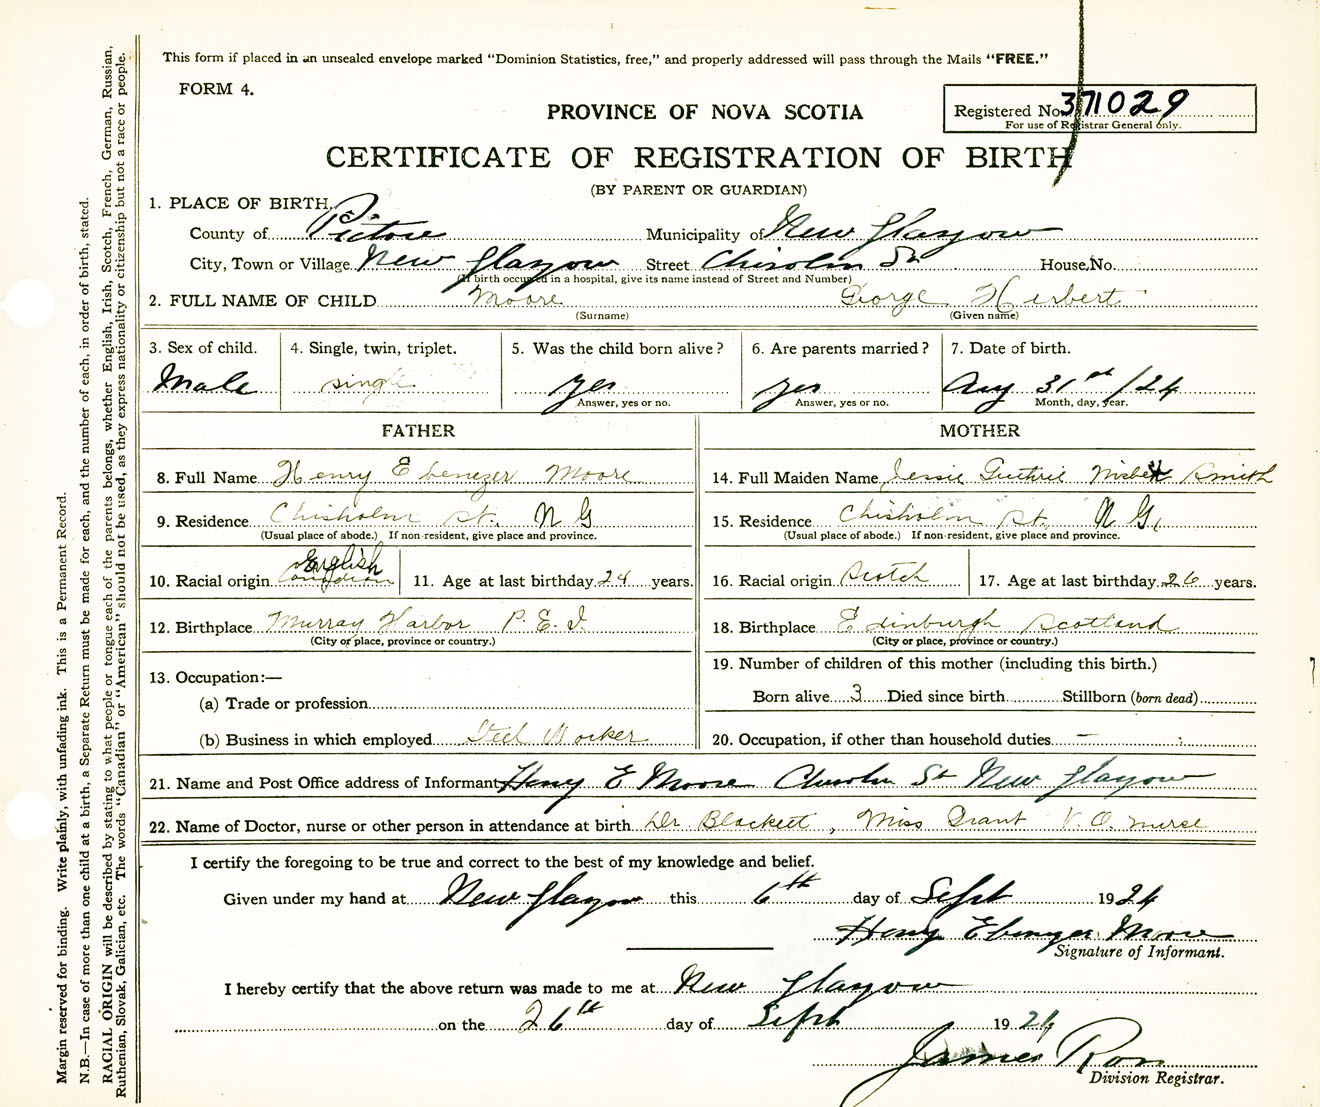 This form if placed in an unsealed envelope marked “Dominion Statistics, free,” and properly addressed will pass through the Mails “FREE.”
FORM 4.
PROVINCE OF NOVA SCOTIA
Registered No. 371029
For use of Registrar General only.
CERTIFICATE OF REGISTRATION OF BIRTH
(BY PARENT OR GUARDIAN)
1. PLACE OF BIRTH
County of Pictou Municipality of New Glasgow
City, Town or Village New Glasgow Street Chisolm St House No.
(If birth occurred in a hospital, give its name instead of Street and Number)
2. FULL NAME OF CHILD Moore George Herbert
(Surname) (Given name)
3. Sex of child. 4. Single, twin, triplet. 5. Was the child born alive? 6. Are parents married? 7. Date of birth.
Male single yes yes Aug 31st /24
Answer, yes or no. Answer, yes or no. Month, day, year.
FATHER MOTHER
8. Full Name Henry Ebenezer Moore 14. Full Maiden Name Jessie Guthrie Nisbet Smith
9. Residence Chisholm St. N G 15. Residence Chisholm St. N G.
(Usual place of abode.) If non-resident, give place and province. (Usual place of abode.) If non-resident, give place and province.
English
10. Racial origin Canadian 11. Age at last birthday 24 years. 16. Racial origin Scotch 17. Age at last birthday 26 years.
12. Birthplace Murray Harbor P. E. I. 18. Birthplace Edinburgh Scotland
(City or place, province or country.) (City or place, province or country.)
13. Occupation:— 19. Number of children of this mother (including this birth.)
(a) Trade or profession Born alive 3 Died since birth Stillborn (born dead)
(b) Business in which employed Steel Worker 20. Occupation, if other than household duties –
21. Name and Post Office address of Informant Henry E Moore Chisolm St New Glasgow
22. Name of Doctor, nurse or other person in attendance at birth Dr. Blackett, Miss Grant V. O. nurse
I certify the foregoing to be true and correct to the best of my knowledge and belief.
Given under my hand at New Glasgow this 6th day of Sept 1924
Henry Ebenezer Moore
Signature of Informant.
I hereby certify that the above return was made to me at New Glasgow
on the 26th day of Sept 1924
James Ron
Division Registrar.
Margin reserved for binding. Write plainly, with unfading ink. This is a Permanent Record.
N.B.—In case of more than one child at a birth, a Separate Return must be made for each, and the number of each, in order of birth, stated.
RACIAL ORIGIN will be described by stating to what people or tongue each of the parents belongs, whether English, Irish, Scotch, French, German, Russian,
Ruthenian, Slovak, Galician, etc. The words “Canadian” or “American” should not be used, as they express nationality or citizenship but not a race or people.